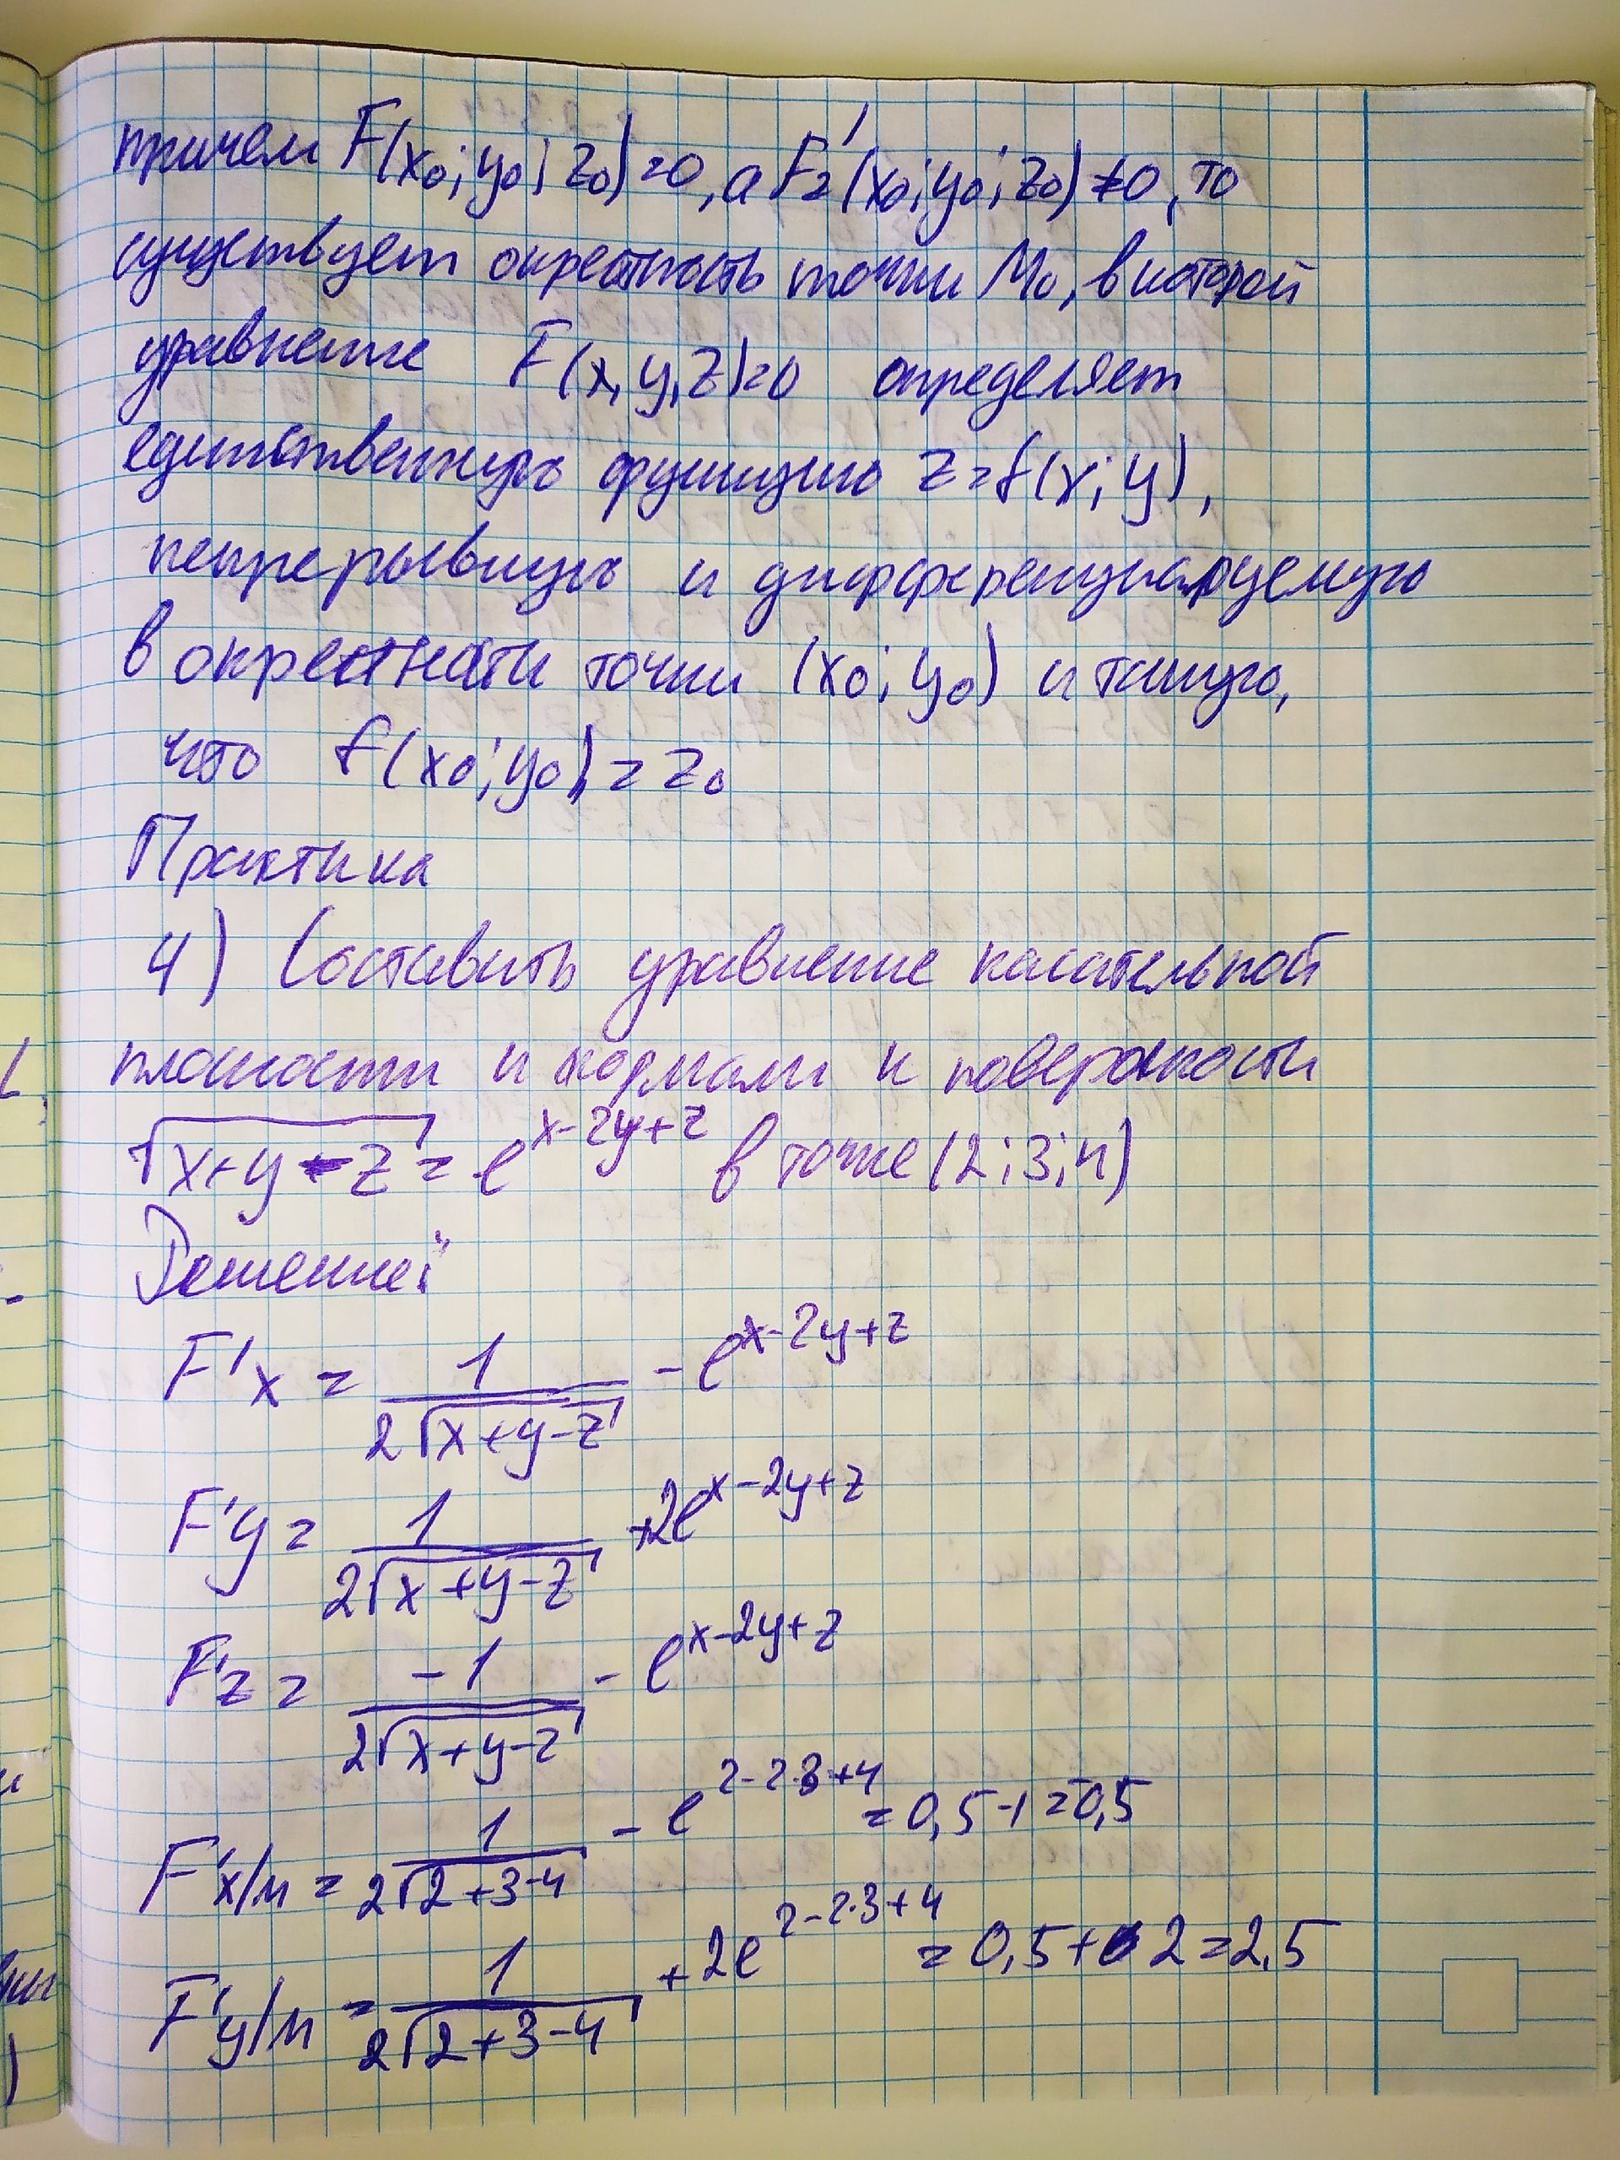 причем F(x₀; y₀; z₀)=0, а F'z(x₀; y₀; z₀)≠0, то
существует окрестность точки M₀, в которой
уравнение F(x, y, z)=0 определяет
единственную функцию z=f(x; y),
непрерывную и дифференциалруемую
в окрестности точки (x₀; y₀) и такую,
что f(x₀; y₀)=z₀
Практика
4) Составить уравнение касательной
плоскости и нормали к поверхности
√(x+y-z) = e^(x-2y+z) в точке (2; 3; 4)
Решение:
F'x = 1/(2√(x+y-z)) - e^(x-2y+z)
F'y = 1/(2√(x+y-z)) +2e^(x-2y+z)
F'z = -1/(2√(x+y-z)) - e^(x-2y+z)
F'x/м = 1/(2√(2+3-4)) - e^(2-2·3+4) = 0,5-1=-0,5
F'y/м = 1/(2√(2+3-4)) + 2e^(2-2·3+4) = 0,5+2=2,5